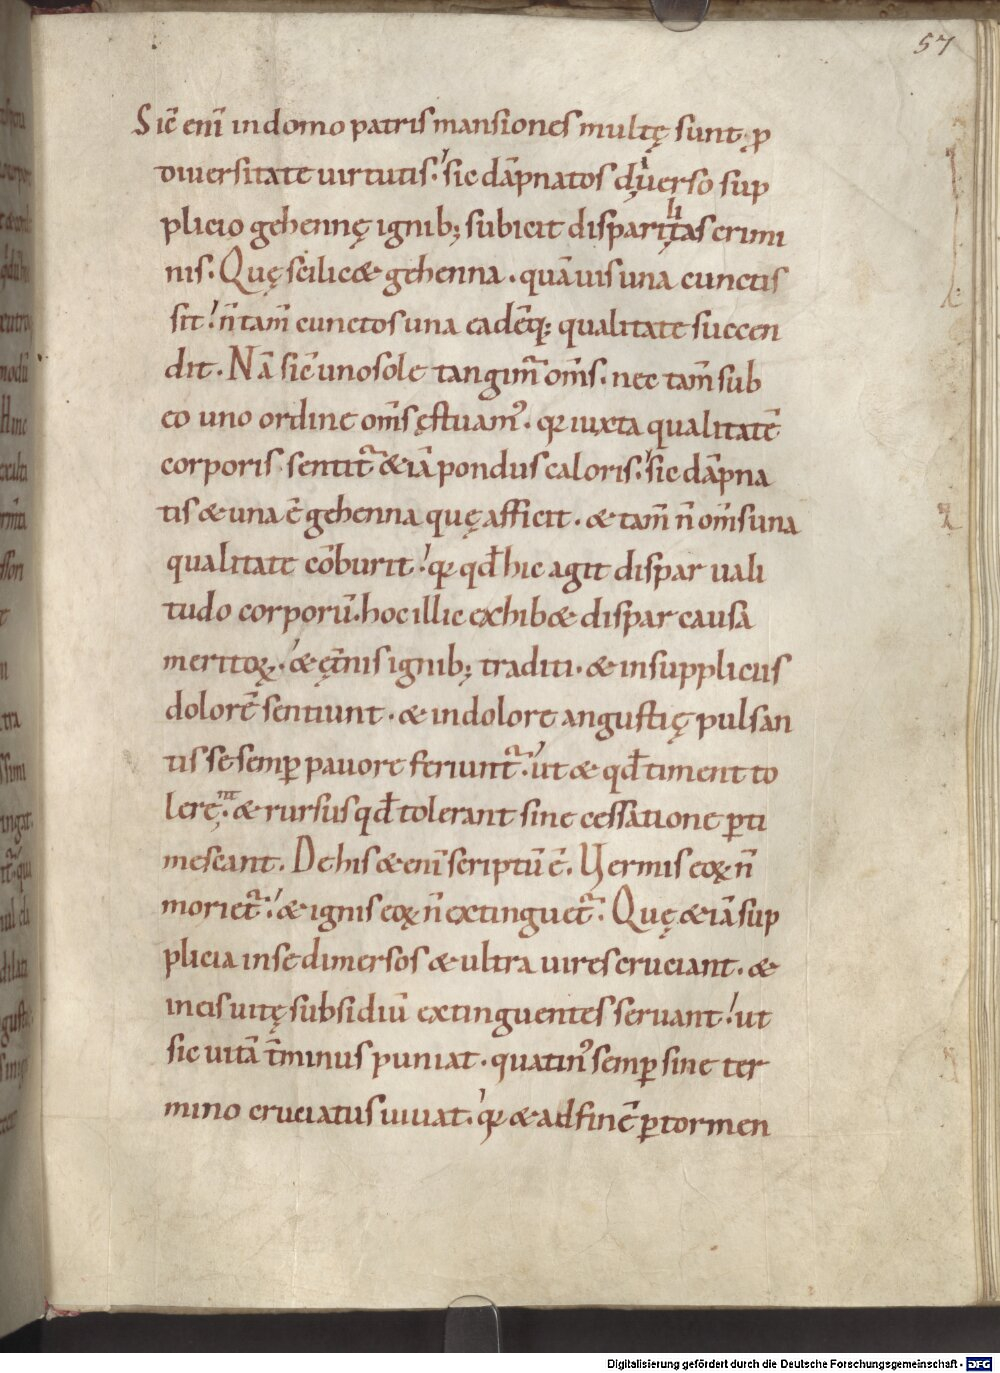 57
Sic̄ eni̅ in domo patris mansiones multę sunt, ꝓ
diuersitate uirtutis. sic dāpnatos diuerso sup
plicio gehennę ignib; subicit disparilitas crimi
nis. Quę scilic& gehenna. quāuis una cunctis
sit! n̄ tam̄ cunctos una eadēq; qualitate succen
dit. Nā sic̄ uno sole tangimur̄ om̄s. nec tam̄ sub
eo uno ordine om̄s ęstuam᾿. qꝛ iuxta qualitatē
corporis sentit᷑ &iā pondus caloris. sic dāpna
tis & una ē gehenna quę afficit. & tam̄ n̄ om̄s una
qualitate cōburit! qꝛ qđ hic agit dispar uali
tudo corporū. hoc illic exhib& dispar causa
meritoꝝ. & ęt̄nis ignib; traditi. & in suppliciis
dolorē sentiunt. & in dolore angustię pulsan
tis se semꝑ pauore feriunt᷑. ut & qđ timent to
lerent. & rursus qđ tolerant sine cessatione ꝑti
mescant. De his & eni̅ scriptū ē. Uermis eoꝝ n̄
moriet᷑! & ignis eoꝝ n̄ extinguet᷑. Quę &iā sup
plicia in se dimersos & ultra uires cruciant. &
in eis uitę subsidiū extinguentes seruant! ut
sic uitā t̄minus puniat. quatin᾿ semꝑ sine ter
mino cruciatus uiuat. qꝛ & ad finē ꝑ tormen
Digitalisierung gefördert durch die Deutsche Forschungsgemeinschaft - DFG